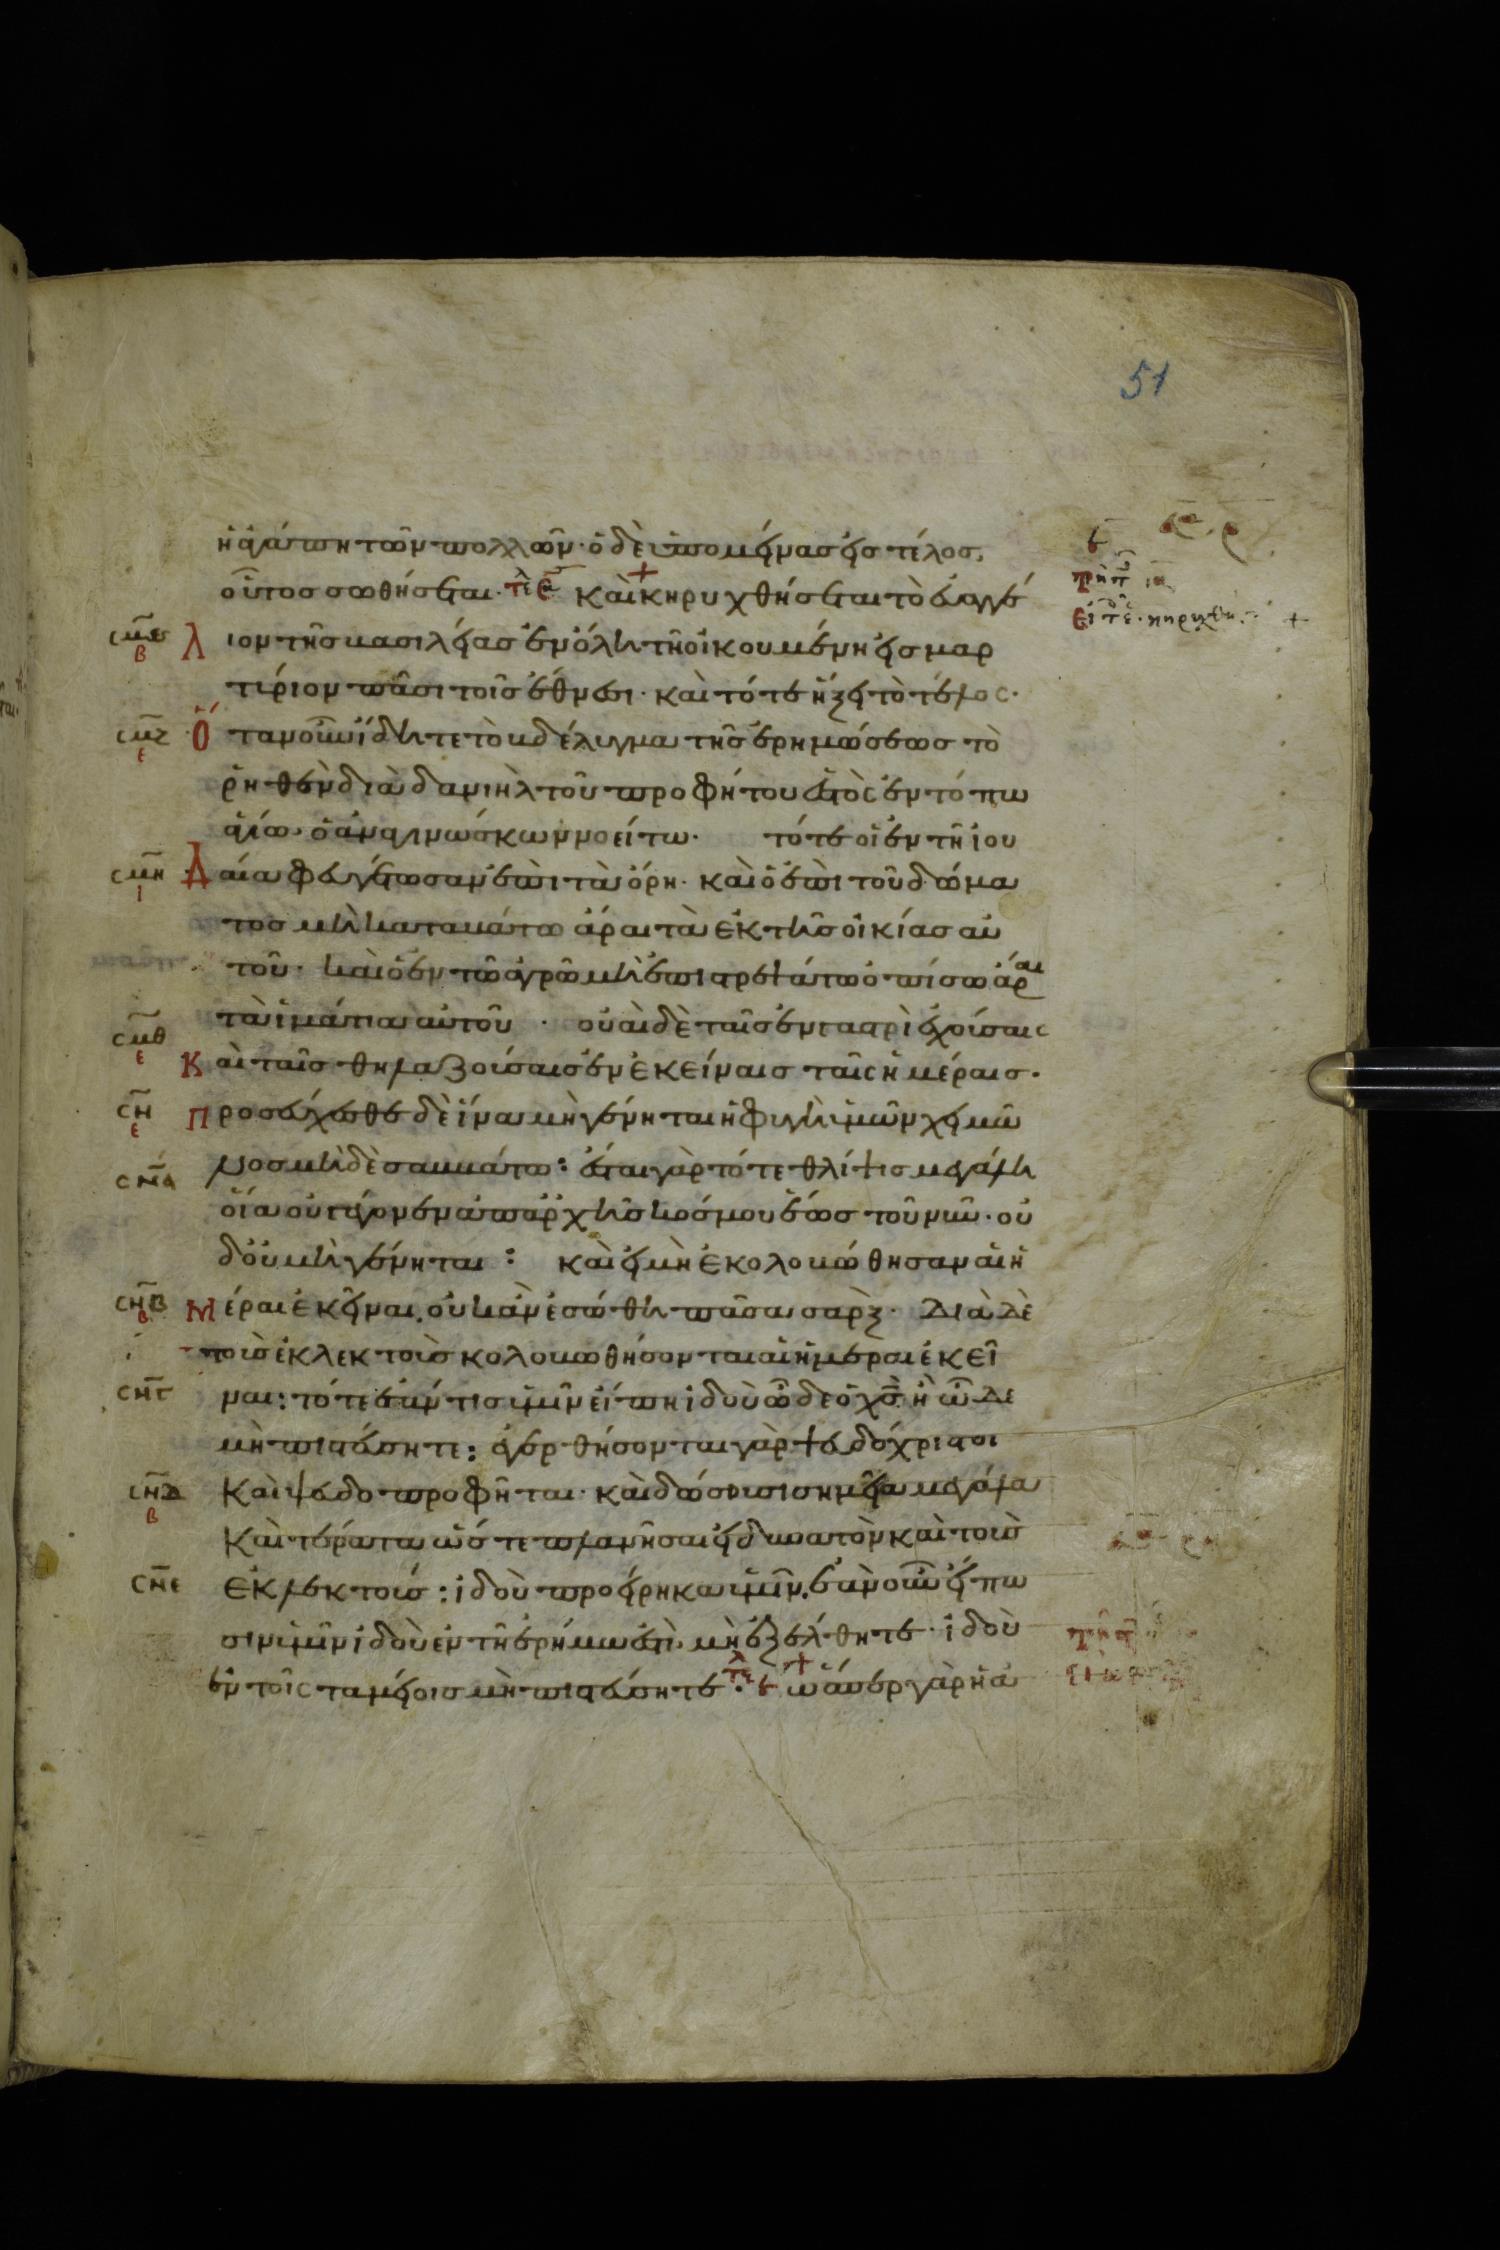 51
ἡ ἀγάπη τῶν πολλῶν· ὁ δὲ ὑπομείνας εἰς τέλος,
οὗτος σωθήσεται. τελ Και κηρυχθήσεται τὸ εὐαγγέ
λιον τῆς βασιλείας ἐν ὅλη τῆ οἰκουμένη εἰς μαρ
τύριον πᾶσι τοῖς ἔθνεσι· καὶ τότε ἥξει τὸ τέλος·
Ὅταν οὖν ἴδητε τὸ βδέλυγμα τῆς ἐρημώσεως τὸ
ῥηθὲν διὰ δανιὴλ τοῦ προφήτου ἑστὸς ἐν τόπω
ἁγίω· ὁ ἀναγινώσκων νοείτω· τότε οἱ ἐν τῆ ἰου
δαία φευγέτωσαν ἐπὶ τὰ ὄρη· καὶ ὁ ἐπὶ τοῦ δώμα
τος μὴ καταβάτω ἆραι τὰ ἐκ τῆς οἰκίας αὐ
τοῦ· καὶ ὁ ἐν τῶ ἀγρῶ μὴ ἐπιστρεψάτω ὀπίσω ἆραι
τὰ ἱμάτια αὐτοῦ · οὐαὶ δὲ ταῖς ἐν γαστρὶ ἐχούσαις
Καὶ ταῖς θηλαζούσαις ἐν ἐκείναις ταῖς ἡμέραις·
Προσεύχεσθε δὲ ἵνα μὴ γένηται ἡ φυγὴ ὑμῶν χειμῶ
νος μηδὲ σαββάτω: ἔσται γὰρ τότε θλίψις μεγάλη
οἵα οὐ γέγονεν ἀπαρχῆς κόσμου ἕως τοῦ νῦν· οὐ
δ' οὐ μὴ γένηται : καὶ εἰ μὴ ἐκολοβώθησαν αἱ ἡ
Μέραι ἐκεῖναι, οὐκ ἂν ἐσώθη πᾶσα σάρξ· Διὰ δὲ
τοὺς ἐκλεκτοὺς κολοβωθήσονται αἱ ἡμέραι ἐκεῖ
ναι: τότε ἐάν τις ὑμῖν εἴπη ἰδοὺ ὧδε ὁ χς ἢ ὧδε
μὴ πιστεύσητε: ἐγερθήσονται γὰρ ψευδόχριστοι
Καὶ ψευδοπροφῆται· καὶ δώσουσι σημεῖα μεγάλα
Καὶ τέρατα ὥστε πλανῆσαι εἰ δυνατὸν καὶ τοὺς
ἐκλεκτούς: ἰδοὺ προείρηκα ὑμῖν, ἐὰν οὖν εἴπω
σιν ὑμῖν ἰδοὺ ἐν τῆ ἐρήμω ἐστὶ, μὴ ἐξέλθητε· ἰδοὺ
ἐν τοῖς ταμείοις μὴ πιστεύσητε· ὥσπερ γὰρ ἡ ἀ
ςμζ
ε
ςμη
ι
ςμθ
ε
ςν
ε
ςνα
ςνβ
β
ςνγ
ςνδ
β
ςνε